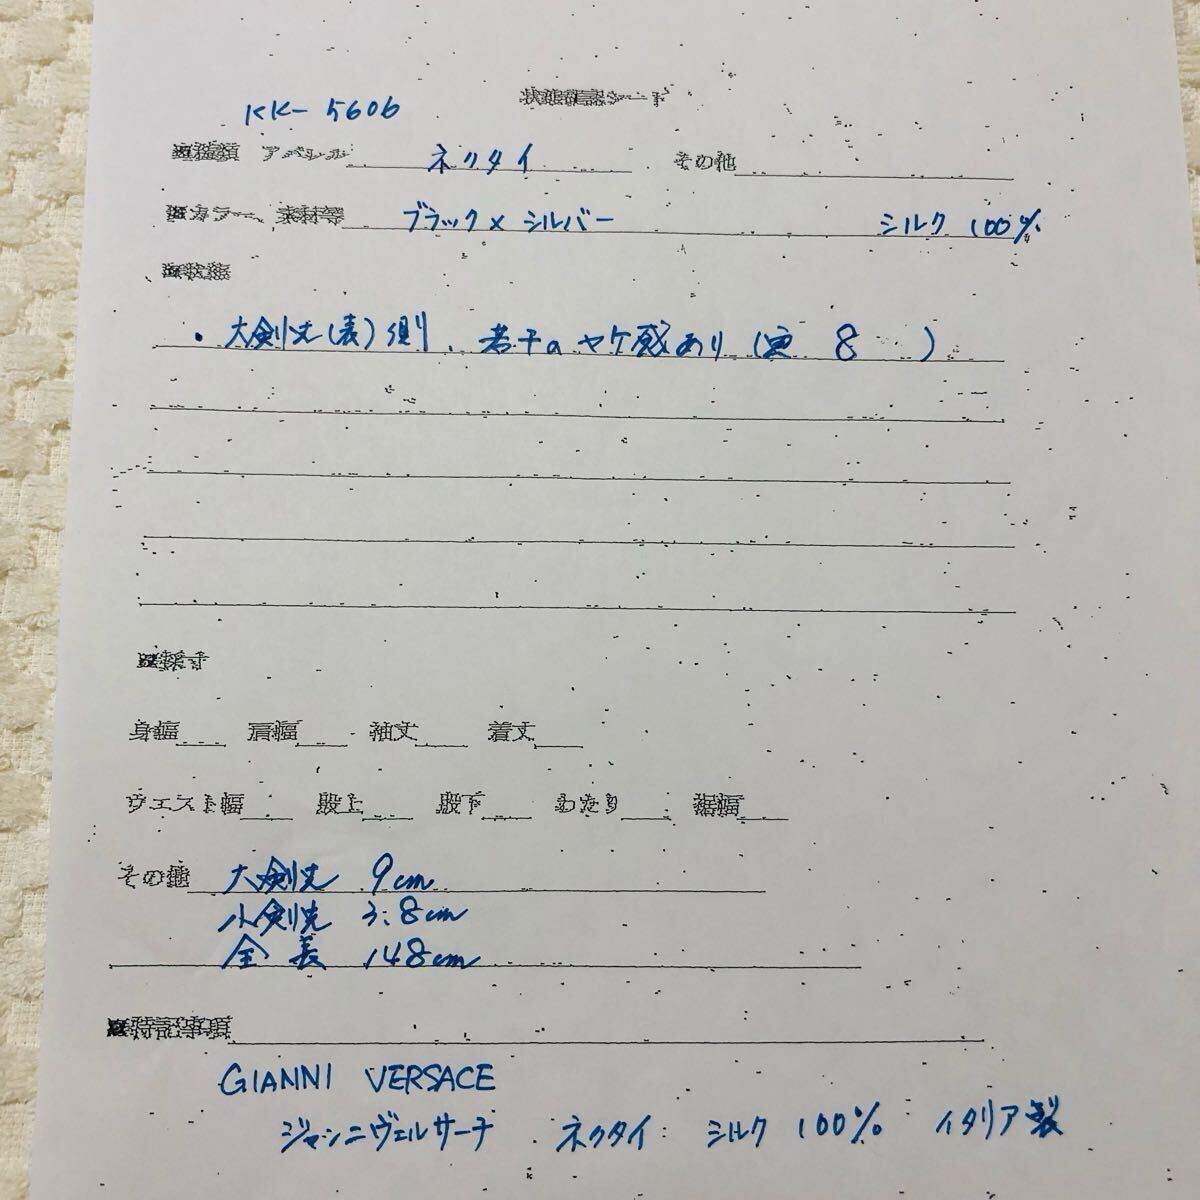 状態確認シート
KK-5606
■種類 アパレル ネクタイ その他
■カラー、素材等 ブラック×シルバー シルク 100%
■状態
・大剣丈(表)側、若干のヤケ感あり( 8 )
■採寸
身幅 肩幅 袖丈 着丈
ウエスト幅 股上 股下 わたり 裾幅
その他 大剣丈 9cm
小剣先 3.8cm
全長 148cm
■特記事項
GIANNI VERSACE
ジャンニヴェルサーチ ネクタイ シルク 100% イタリア製